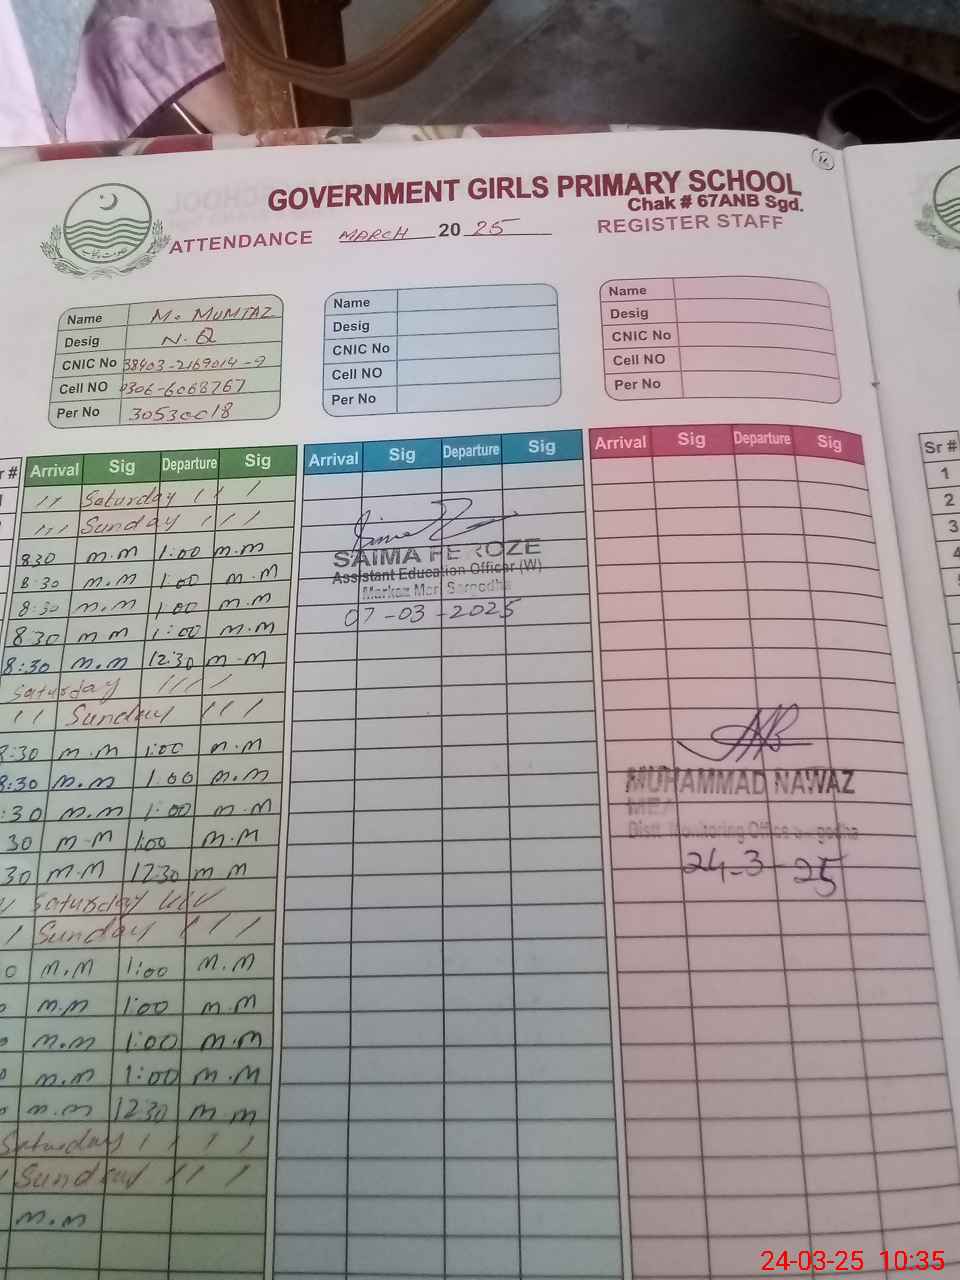 16
GOVERNMENT GIRLS PRIMARY SCHOOL
Chak # 67ANB Sgd.
ATTENDANCE MARCH 20 25 REGISTER STAFF
Name M. MUMTAZ
Desig N.Q
CNIC No 38403-2169014-9
Cell NO 0306-6068767
Per No 3053cc18
Name
Desig
CNIC No
Cell NO
Per No
Name
Desig
CNIC No
Cell NO
Per No
Arrival Sig Departure Sig
Saturday
Sunday
8:30 m.m 1:00 m.m
8:30 m.m 1:00 m.m
8:30 m.m 1:00 m.m
8:30 m.m 1:00 m.m
8:30 m.m 12:30 m.m
Saturday
Sunday
8:30 m.m 1:00 m.m
8:30 m.m 1:00 m.m
:30 m.m 1:00 m.m
30 m-m 1:00 m.m
30 m.m 12:30 m m
Saturday
Sunday
0 m.m 1:00 m.m
m.m 1:00 m.m
m.m 1:00 m.m
m.m 1:00 m.m
m.m 12:30 m.m
Saturday
Sunday
m.m
Arrival Sig Departure Sig
SAIMA FEROZE
Assistant Education Officer (W)
07-03-2025
Arrival Sig Departure Sig
MUHAMMAD NAWAZ
MEA
Distt. Monitoring Office Sargodha
24-3-25
Sr #
1
2
3
4
5
24-03-25 10:35